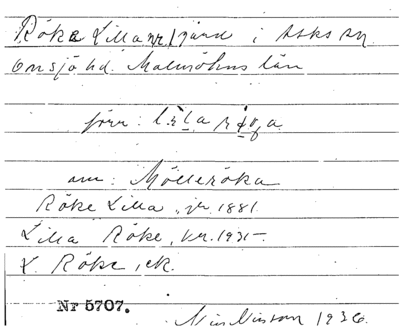 Röke Lilla nr 1 gård i Asks sn
Onsjö hd. Malmöhus län
förr: lìla rǿga
om: Mölleröka
Röke Lilla, jr. 1881.
Lilla Röke, kr. 1935
L. Röke, ek.
Nr 5707.
Nils Nilsson 1936.